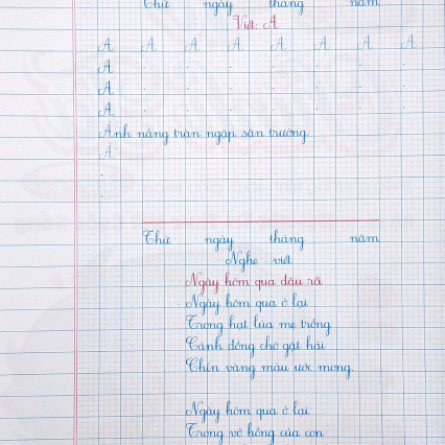 Thứ ngày tháng năm
Viết: A
A A A A A A A A
A
A
A
Ánh nắng tràn ngập sân trường.
A
Thứ ngày tháng năm
Nghe viết
Ngày hôm qua đâu rồi
Ngày hôm qua ở lại
Trong hạt lúa mẹ trồng
Cánh đồng chờ gặt hái
Chín vàng màu ước mong.
Ngày hôm qua ở lại
Trong vở hồng của con